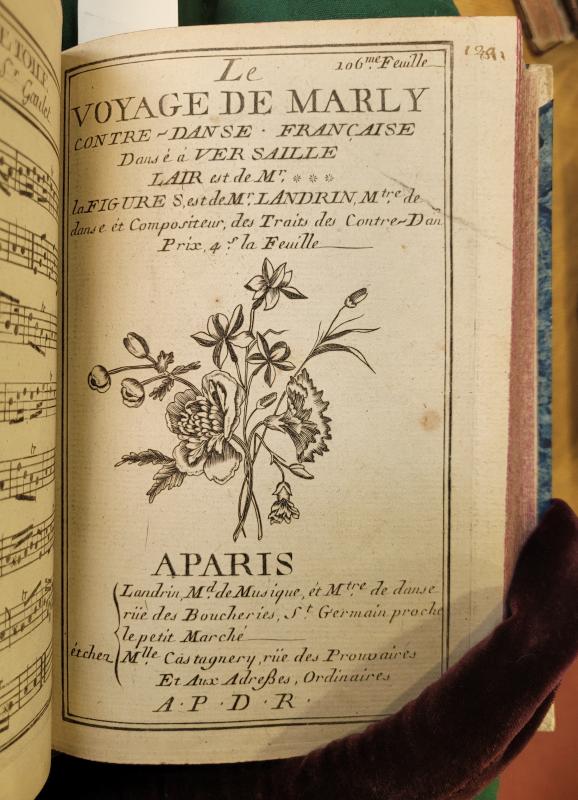 E TOILE
Sr Gaulet
106.me Feuille
Le
VOYAGE DE MARLY
CONTRE~DANSE · FRANÇAISE
Dansé à VERSAILLE
LAIR est de Mr. ***
la FIGURE S, est de Mr. LANDRIN, M.tre de
danse ét Compositeur, des Traits des Contre~Dan
Prix, 4 s. la Feuille
APARIS
Landrin, M.d de Musique, ét M.tre de danse
rüe des Boucheries, S.t Germain proche
le petit Marché
ét chez Mlle. Castagnery, rüe des Prouvaires
Et Aux Adreßes, Ordinaires
A · P · D · R ·